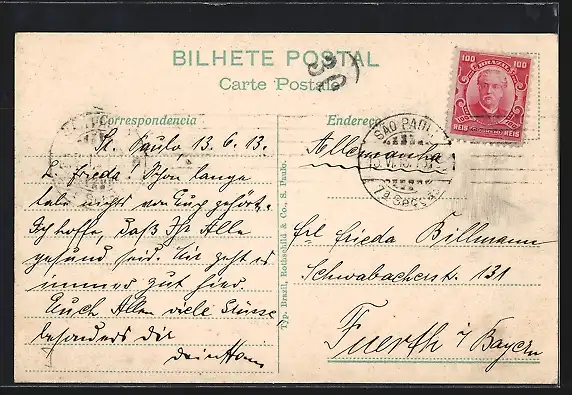 BILHETE POSTAL
Carte Postale
Correspondencia
Endereço
100 BRAZIL 100
REIS REIS
SÃO PAULO
7a SECÇÃO
St. Paulo 13. 6. 13.
L. Frieda! Schon lange
habe nichts von Euch gehört.
Ich hoffe, daß Ihr Alle
gesund seid. Mir geht es
immer gut hier.
Euch Allen viele Grüsse
besonders dir
dein Hans
Typ. Brazil, Rothschild & Co. S. Paulo.
Allemanha
Frl Frieda Billmann
Schwabacherstr. 131
Fuerth i/ Bayern